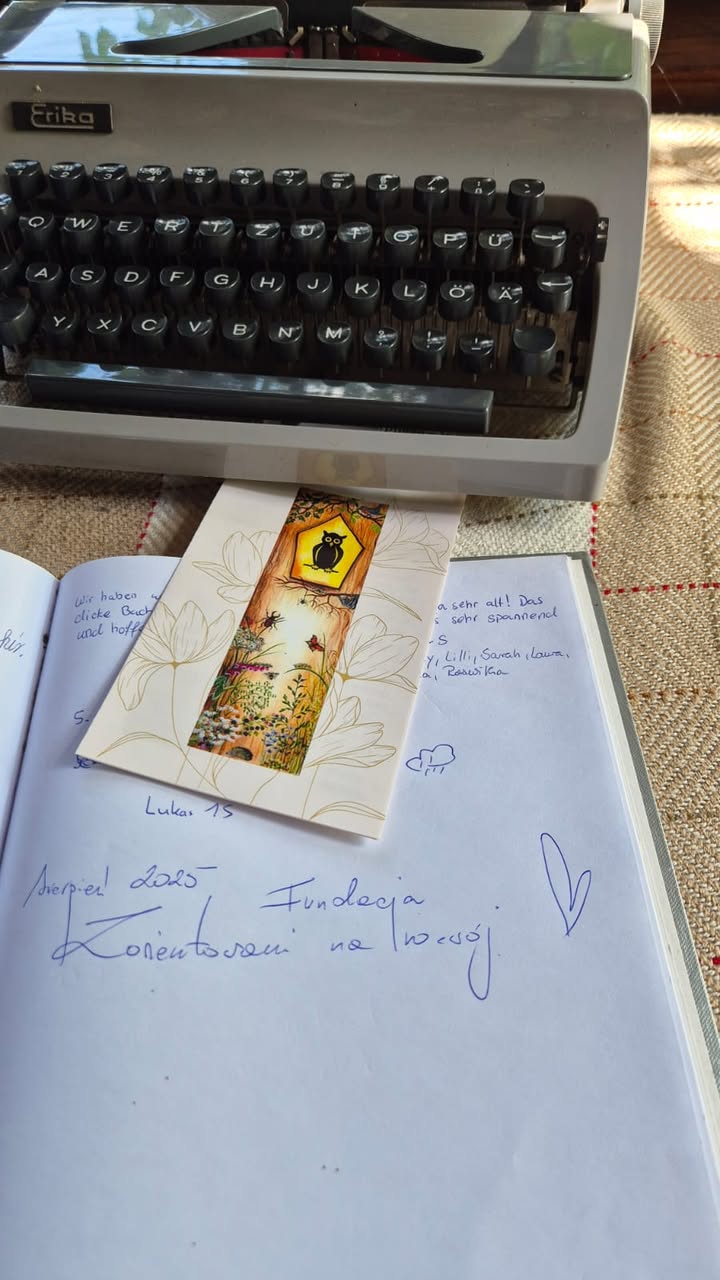 Erika
Q W E R T Z U I O P Ü
A S D F G H J K L Ö Ä
Y X C V B N M
Wir haben
a sehr alt! Das
dicke Buch
s sehr spannend
und hoff
-S
y, Lilli, Sarah, Laura,
a, Roswitha
5.
Lukas 15
Sierpień 2025
Fundacja
Zorientowani na rozwój